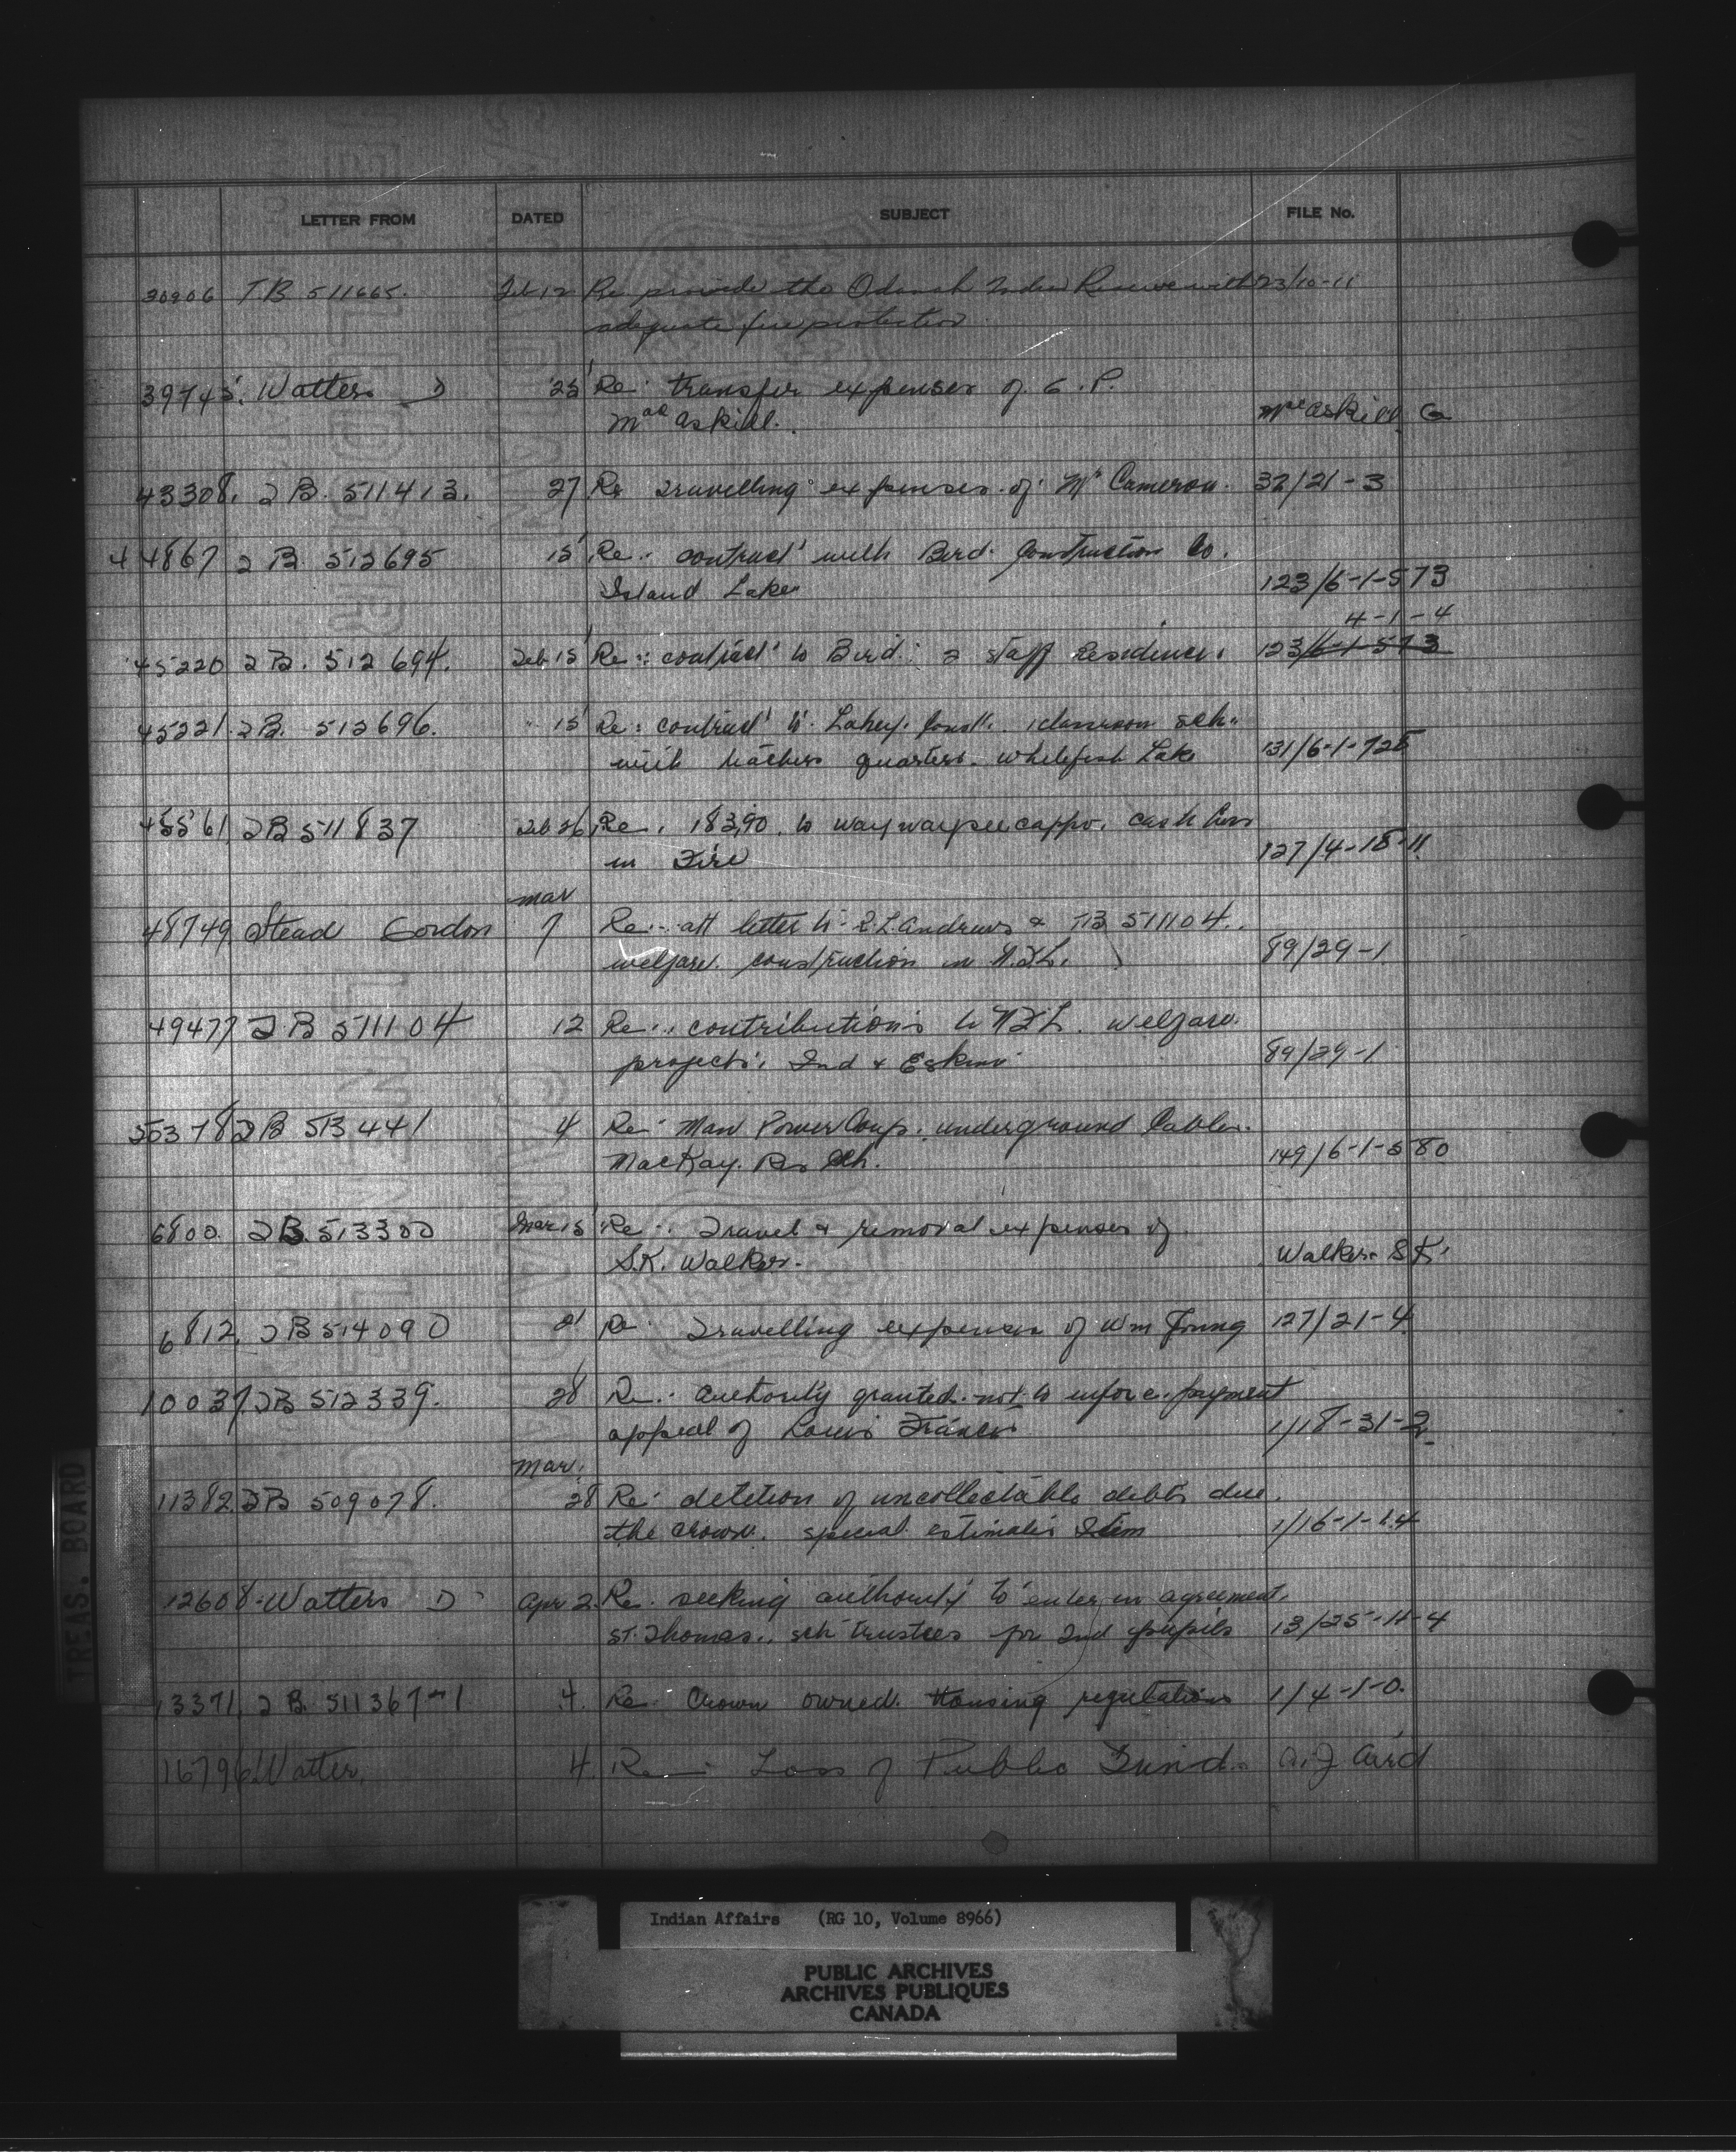 LETTER FROM DATED SUBJECT FILE No.
30906 TB 511665. Feb 12 Re provide the Odanah Indian Reserve with 23/10-11
adequate fire protection
39745. Watters D 25 Re: transfer expenses of G. P.
Mac Askill. MacAskill G
43308. TB. 511413. 27 Re travelling expenses of Mr Cameron. 32/21-3
44867 TB 512695 15 Re: contract with Bird Construction Co.
Island Lake 123/6-1-573
4-1-4
45220 TB. 512694. Feb 15 Re: contract to Bird: 2 staff Residence. 123/6-1-573
45221. TB. 512696. " 15 Re: contract to Lahey Const. 1 classroom sch.
with teachers quarters. Whitefish Lake 131/6-1-725
45561 TB 511837 Feb 26 Re. 183.90 to Waywayseecappo. cash loss
in Fire 127/4-18-11
mar
48749 Stead Gordon 7 Re: att letter to R.L. Andrews & TB 511104.
welfare construction in 89/29-1
49477 TB 511104 12 Re: contributions to welfare
projects. Ind & Eskimo 89/29-1
50378 TB 513441 4 Re: Man Power Comp. underground Cables.
MacKay. Res Sch. 149/6-1-580
6800. TB. 513300 Mar 15 Re: Travel & removal expenses of
S.K. Walker. Walker S K.
6812. TB 514090 21 Re: Travelling expenses of Wm Young 127/21-4
10037. TB 512339. 28 Re: Authority granted not to enforce payment
appeal of Louis Francis 1/18-31-2
Mar.
11382. TB 509078. 28 Re: deletion of uncollectable debts due
the Crown. special estimates Item 1/16-1-1.4
12608. Watters D Apr 2. Re. seeking authority to enter in agreement.
St. Thomas. sch trustees for Ind pupils 13/25-11-4
13371. TB. 511367-1 4. Re: Crown owned Housing regulations 1/4-1-0.
16796. Watter. 4. Re: Loss of Public Fund. A.J Aird
TREAS. BOARD
Indian Affairs (RG 10, Volume 8966)
PUBLIC ARCHIVES
ARCHIVES PUBLIQUES
CANADA